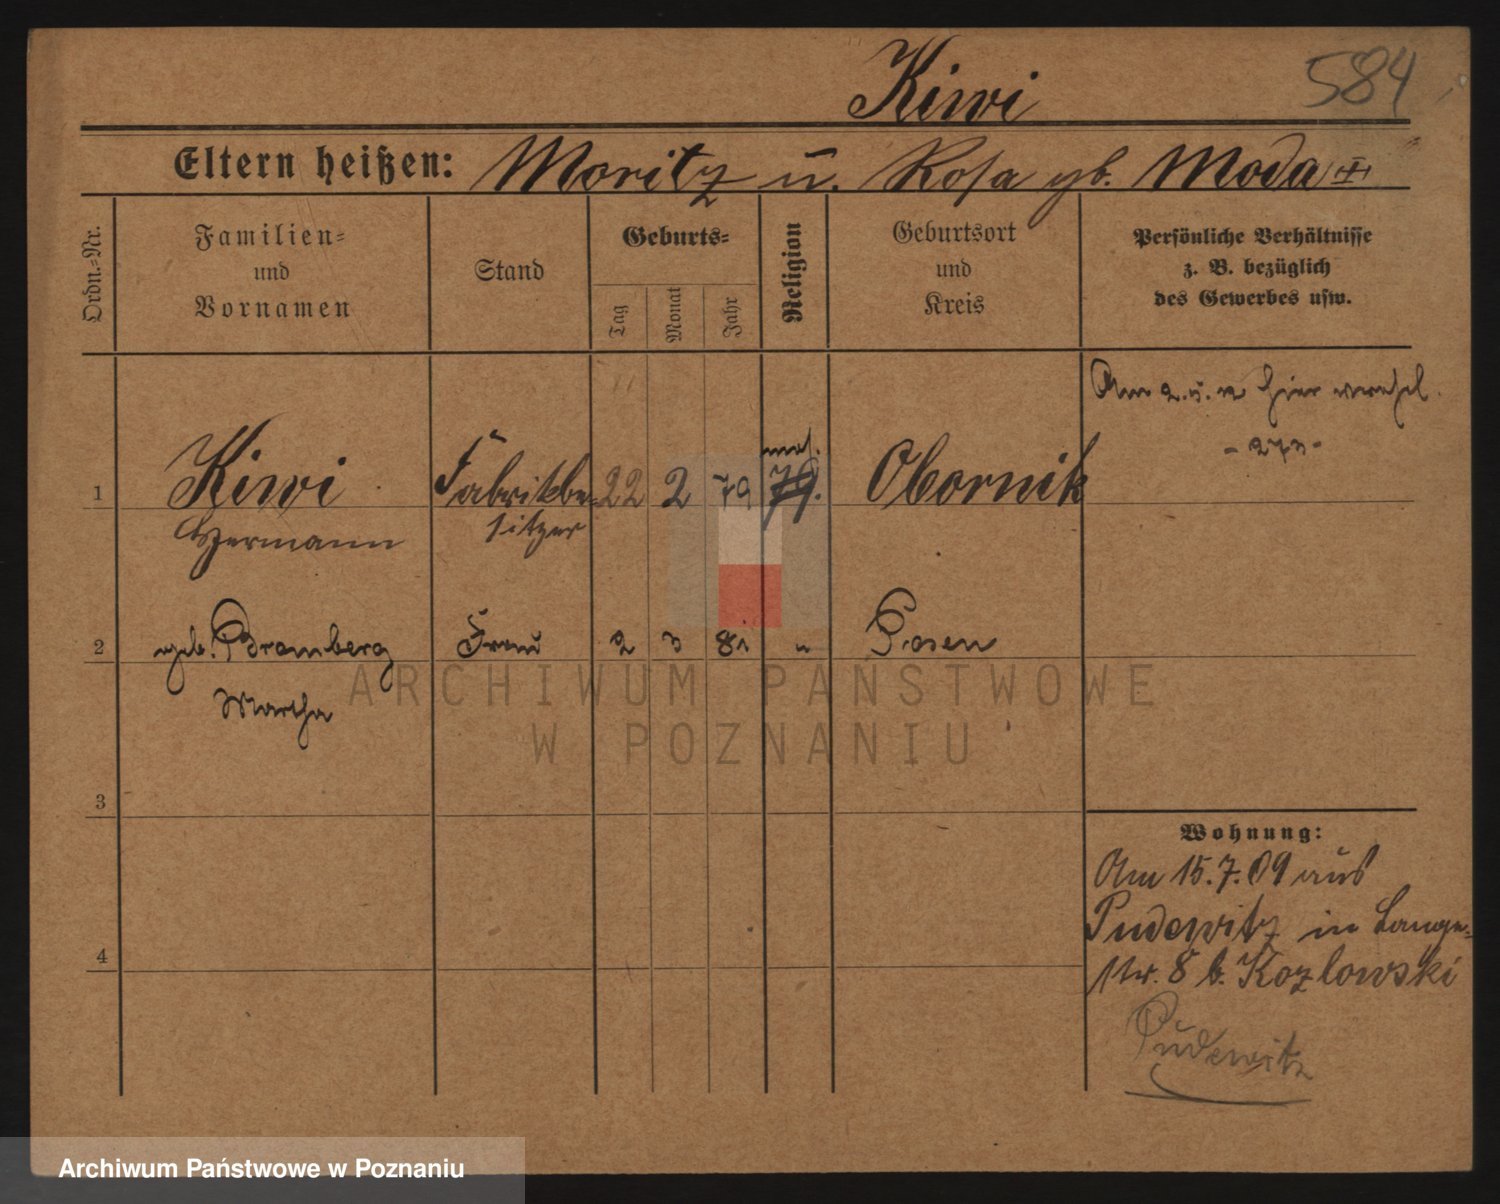 Kiwi 584
Eltern heißen: Moritz u. Rosa gb. Moda
Ordn.-Nr.
Familien-
und
Vornamen
Stand
Geburts-
Tag
Monat
Jahr
Religion
Geburtsort
und
Kreis
Persönliche Verhältnisse
z. B. bezüglich
des Gewerbes usw.
Am hier
mos.
1 Kiwi Fabrikbe- 22 2 79 79. Obornik
Hermann sitzer
2 geb. Bromberg Frau 2 3 81 " Posen
Martha
3
4
Wohnung:
Am 15.7.09 aus
Pudewitz in Lange-
str. 8 b. Kozlowski
Pudewitz
ARCHIWUM PAŃSTWOWE
W POZNANIU
Archiwum Państwowe w Poznaniu